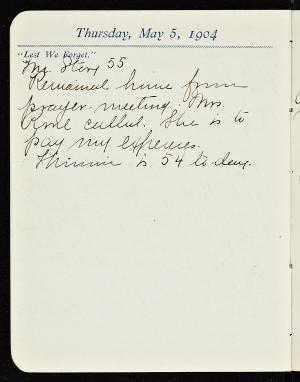 Thursday, May 5, 1904
"Lest We Forget."
Mr Story 55
Remained home from
prayer-meeting. Mrs.
called. She is to
pay my expenses.
Minnie is 54 to day.